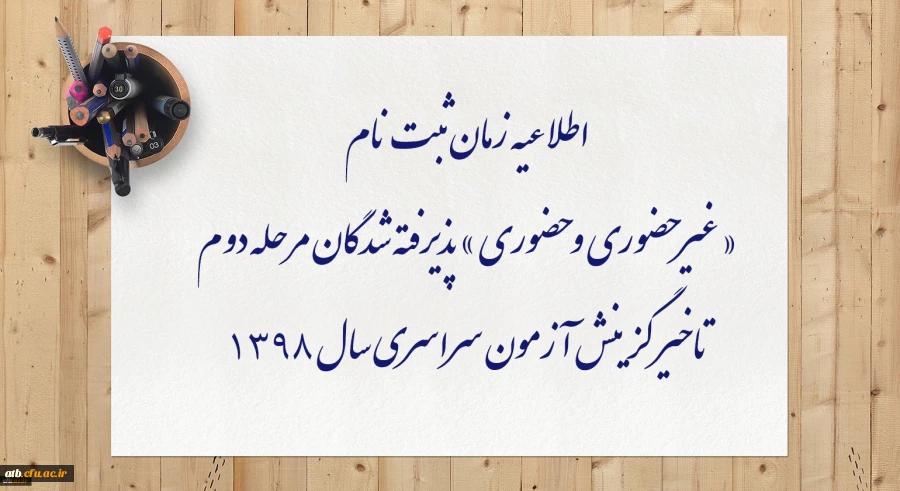 اطلاعیه زمان ثبت نام
« غیرحضوری و حضوری » پذیرفته شدگان مرحله دوم
تاخیر گزینش آزمون سراسری سال ۱۳۹۸
30
03
atb.cfu.ac.ir